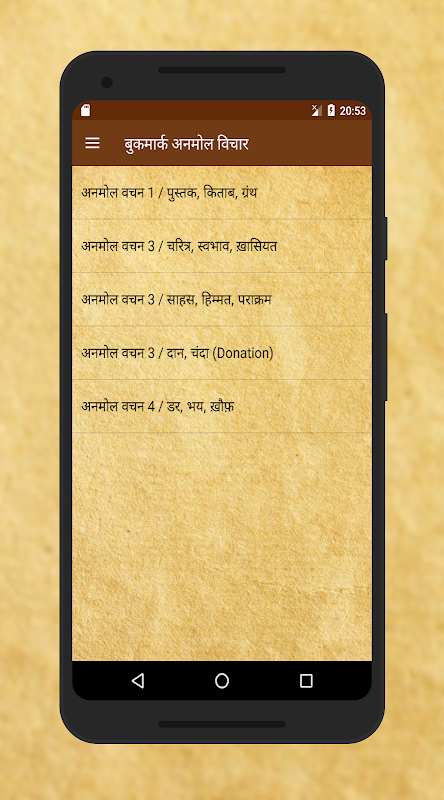 20:53
बुकमार्क अनमोल विचार
अनमोल वचन 1 / पुस्तक, किताब, ग्रंथ
अनमोल वचन 3 / चरित्र, स्वभाव, ख़ासियत
अनमोल वचन 3 / साहस, हिम्मत, पराक्रम
अनमोल वचन 3 / दान, चंदा (Donation)
अनमोल वचन 4 / डर, भय, ख़ौफ़